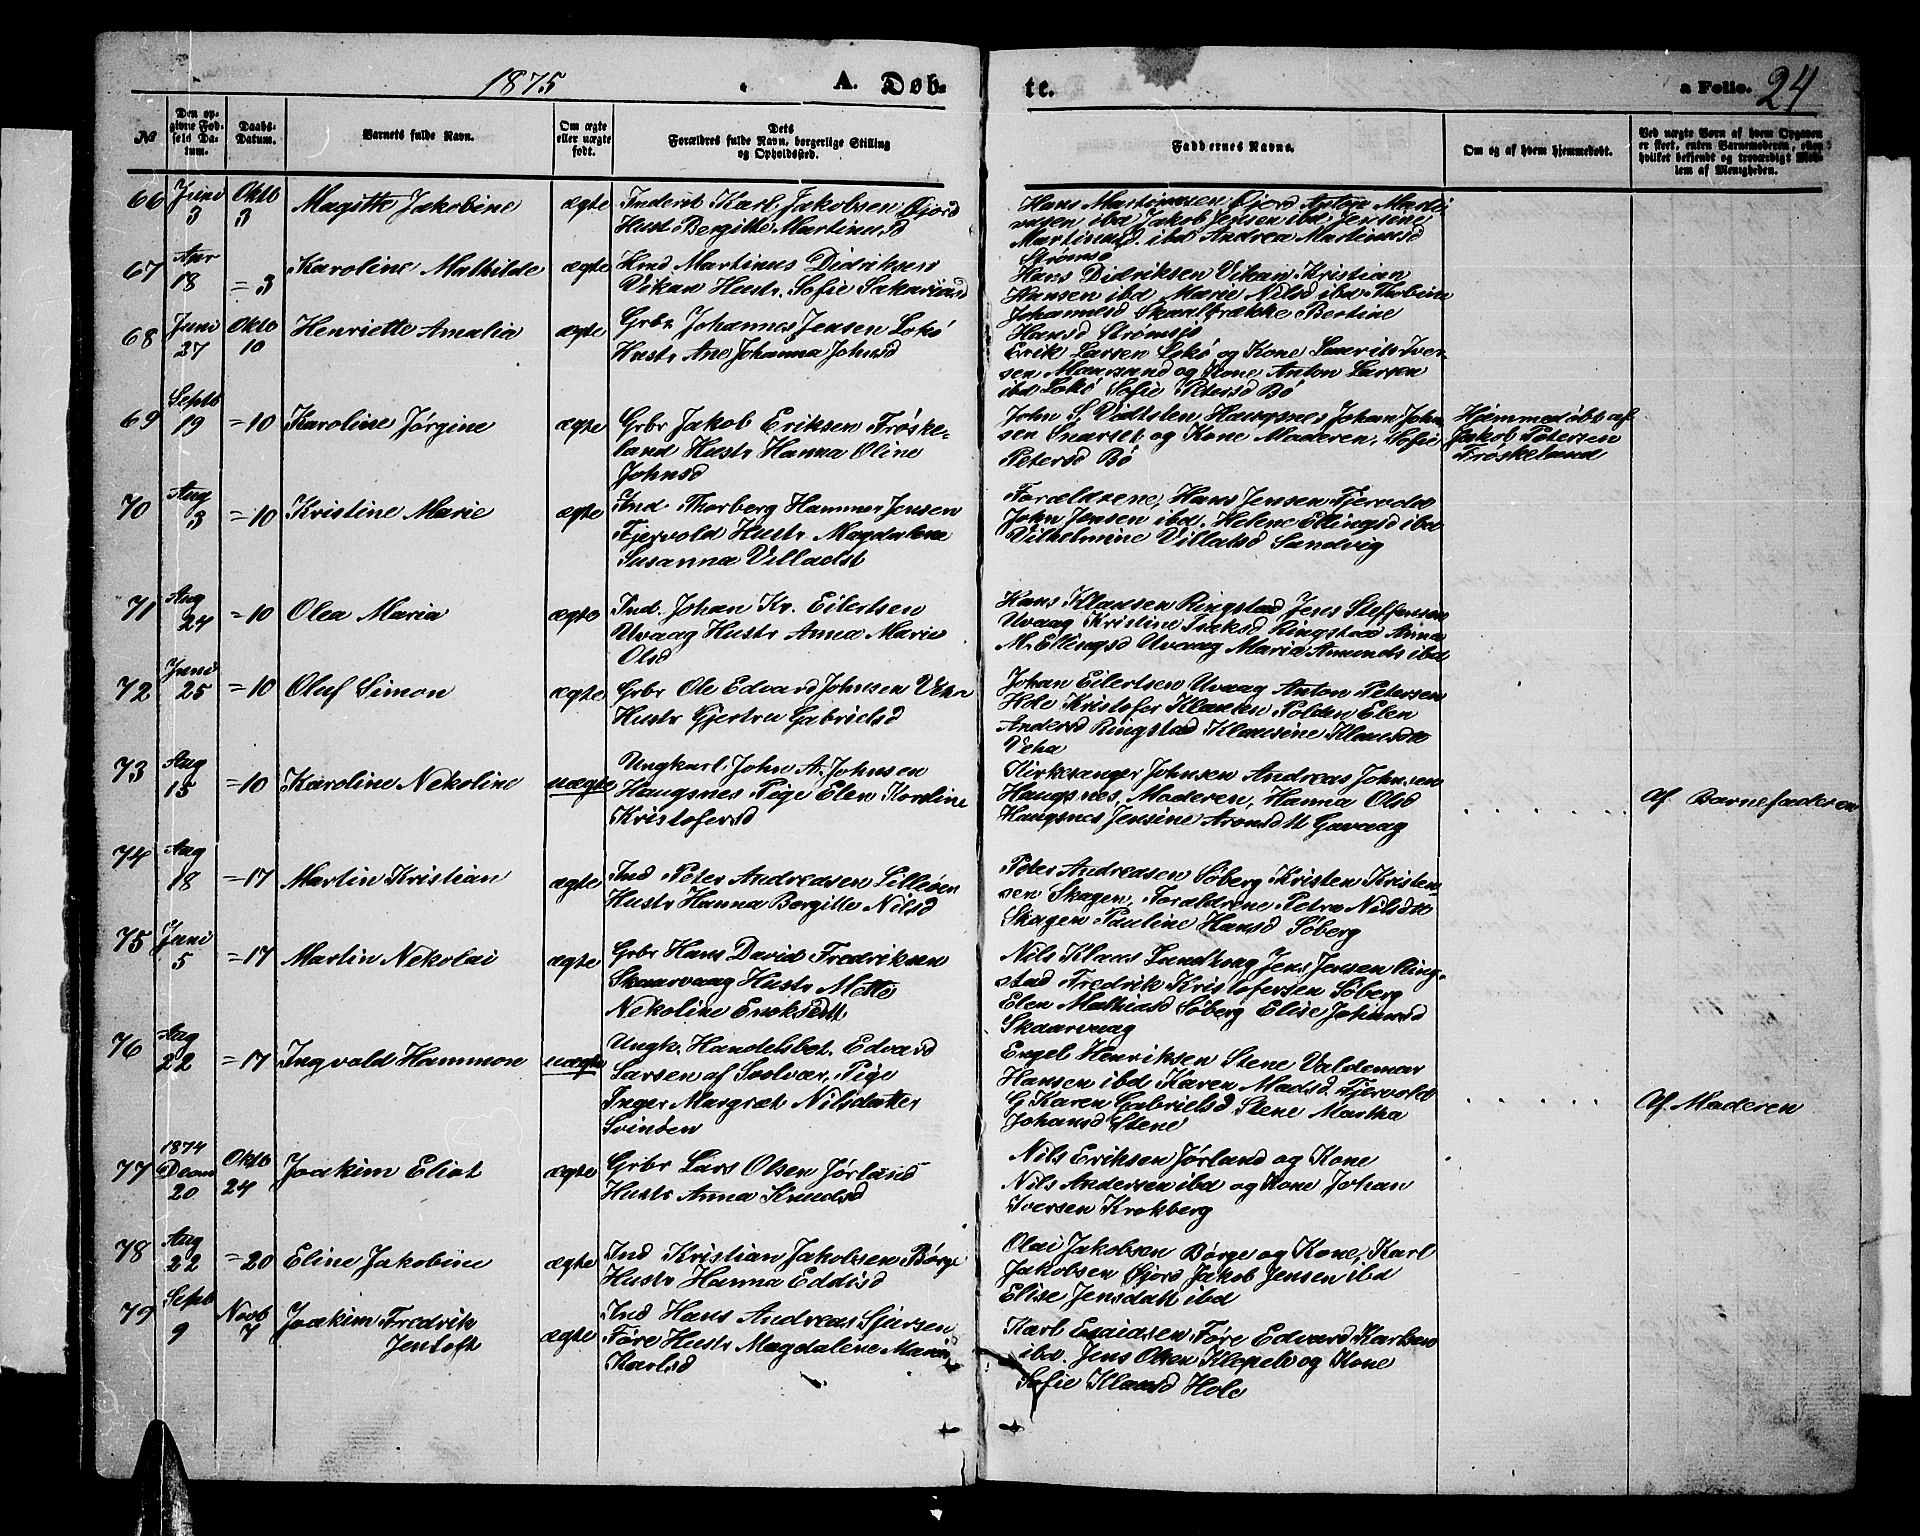 1875
A. Døb-
te.
a Folio. 24
№
Den op-
givne Fød-
sels Da-
tum.
Daabs-
Datum.
Barnets fulde Navn.
Om ægte
eller uægte
født.
Dets
Forældres fulde Navn, borgerlige Stilling
og Opholdssted.
Faddernes Navne.
Om og af hvem hjemmedøbt.
Ved uægte Børn af hvem Opgaven
er skeet, enten Barnemoderen, eller
hvilket bekjendt og troværdigt Med-
lem af Menigheden.
66 Juni 3 Oktb 3 Magitte Jakobine ægte
Inderst Karl Jakobsen Øjord
Hust. Bergitte Martinusd
Hans Martinussen Øjord Antoje Marti
nusen ibd Jakob Jensen ibd, Jensine
Martinusd. ibd Andrea Martinusd
Strømsø
67 Apr 18 = 3 Karoline Mathilde ægte
Hmd Martinus Didriksen
Vikan Hustr. Sofie Sakariasd
Hans Didriksen Vikan Kristian
Hansen ibd Marie Nilsd ibd
Johannesd Skaalbrække Bertine
Hansd Strømsjø
68 Juni 27 Oktb 10 Henriette Amalia ægte
Grbr Johannes Jensen Lokø
Hustr Ane Johanna Johnsd
Erik Larsen Lokø og Kone Laurits Iver-
sen Maursund og Kone Anton Larsen
ibd Lokø Sofie Petersd Bø
69 Septb 19 = 10 Karoline Jørgine ægte
Grbr Jakob Eriksen Frøske-
land Hustr Hanna Oline
Johnsd
John S. Haugsnes Johan John
sen Snarset og Kone Moderen, Sofie
Petersd Bø
Hjemmedøbt af
Jakob Petersen
Frøskeland
70 Aug 3 = 10 Kristine Marie ægte
Ind Thorberg Hammer Jensen
Fjervold Hustr. Magdalena
Susanna Villadst
Forældrene, Hans Jensen Fjervold
John Jensen ibd. Helene Ellingsd ibd
Vilhelmine Villatsd Sandvig
71 Aug 24 = 10 Olea Maria ægte
Ind. Johan Kr. Eilertsen
Uvaag Hustr Anna Marie
Olsd
Hans Klausen Ringstad Jens Steffensen
Uvaag Kristine Isaksd Ringstad Anna
M. Ellingsd Uvaag Maria Amunds ibd
72 Juni 25 = 10 Oluf Simon ægte
Grbr Ole Edvard Johnsen Veha
Hustr Gjertru Gabrielsd
Johan Eilertsen Uvaag Anton Petersen
Hole Kristofer Klausen Polden Elen
Andersd Ringstad Klausine Klausdtr
Veha
73 Aug 15 = 10 Karoline Nekoline uægte
Ungkarl John A. Johnsen
Haugsnes Pige Elen Karoline
Kristofersd
Kirkesanger Johnsen Andreas Johnsen
Haugsnes, Moderen, Hanna Olsd
Haugsnes Jensine Aronsdtt Gavaag
Af Barnefaderen
74 Aug 18 = 17 Martin Kristian ægte
Ind Peter Andreasen Lilleøen
Hustr Hanna Bergitte Nilsd
Peter Andreasen Søberg Kristen Kristen-
sen Skagen, Forældrene Petra Nilsdtr
Skagen Pauline Hansd Søberg
75 Juni 5 = 17 Martin Nekolai ægte
Grbr Hans David Fredriksen
Skaarvaag Hustr Mette
Nekoline Eriksdtt
Nils Klaus Jens Jensen Ring-
stad Fredrik Kristofersen Søberg
Elen Mathiasd Søberg Elise Johansd
Skaarvaag
76 Aug 22 = 17 Ingvald Hammon uægte
Ungk. Handelsbet. Edvard
Larsen af Svolvær, Pige
Inger Margret Nilsdatter
Svinøen
Engel Henriksen Stene Valdemar
Hansen ibd Karen Madsd Fjervold
G Karen Gabrielsd Stene Martha
Johansd Stene
Af Moderen
77 1874 Decmb 20 Oktb 24 Joakim Eliot ægte
Grbr Lars Olsen Jørland
Hustr Anna Knudsd
Nils Eriksen Jørland og Kone
Nils Andersen ibd og Kone, Johan
Iversen Krokberg
78 Aug 22 = 20 Eline Jakobine ægte
Ind Kristian Jakobsen Børge
Hustr Hanna Eddisd
Olai Jakobsen Børge og Kone, Karl
Jakobsen Øjord Jakob Jensen ibd
Elise Jensdatt ibd
79 Septb 9 Novb 7 Joakim Fredrik
Jentoft ægte
Ind Hans Andreas Sjursen
Føre Hustr Magdalene Marie
Karlsd
Karl Esaiasen Føre Edvard Karlsen
ibd. Jens Olsen Klepels og Kone
Sofie Klausd Hole